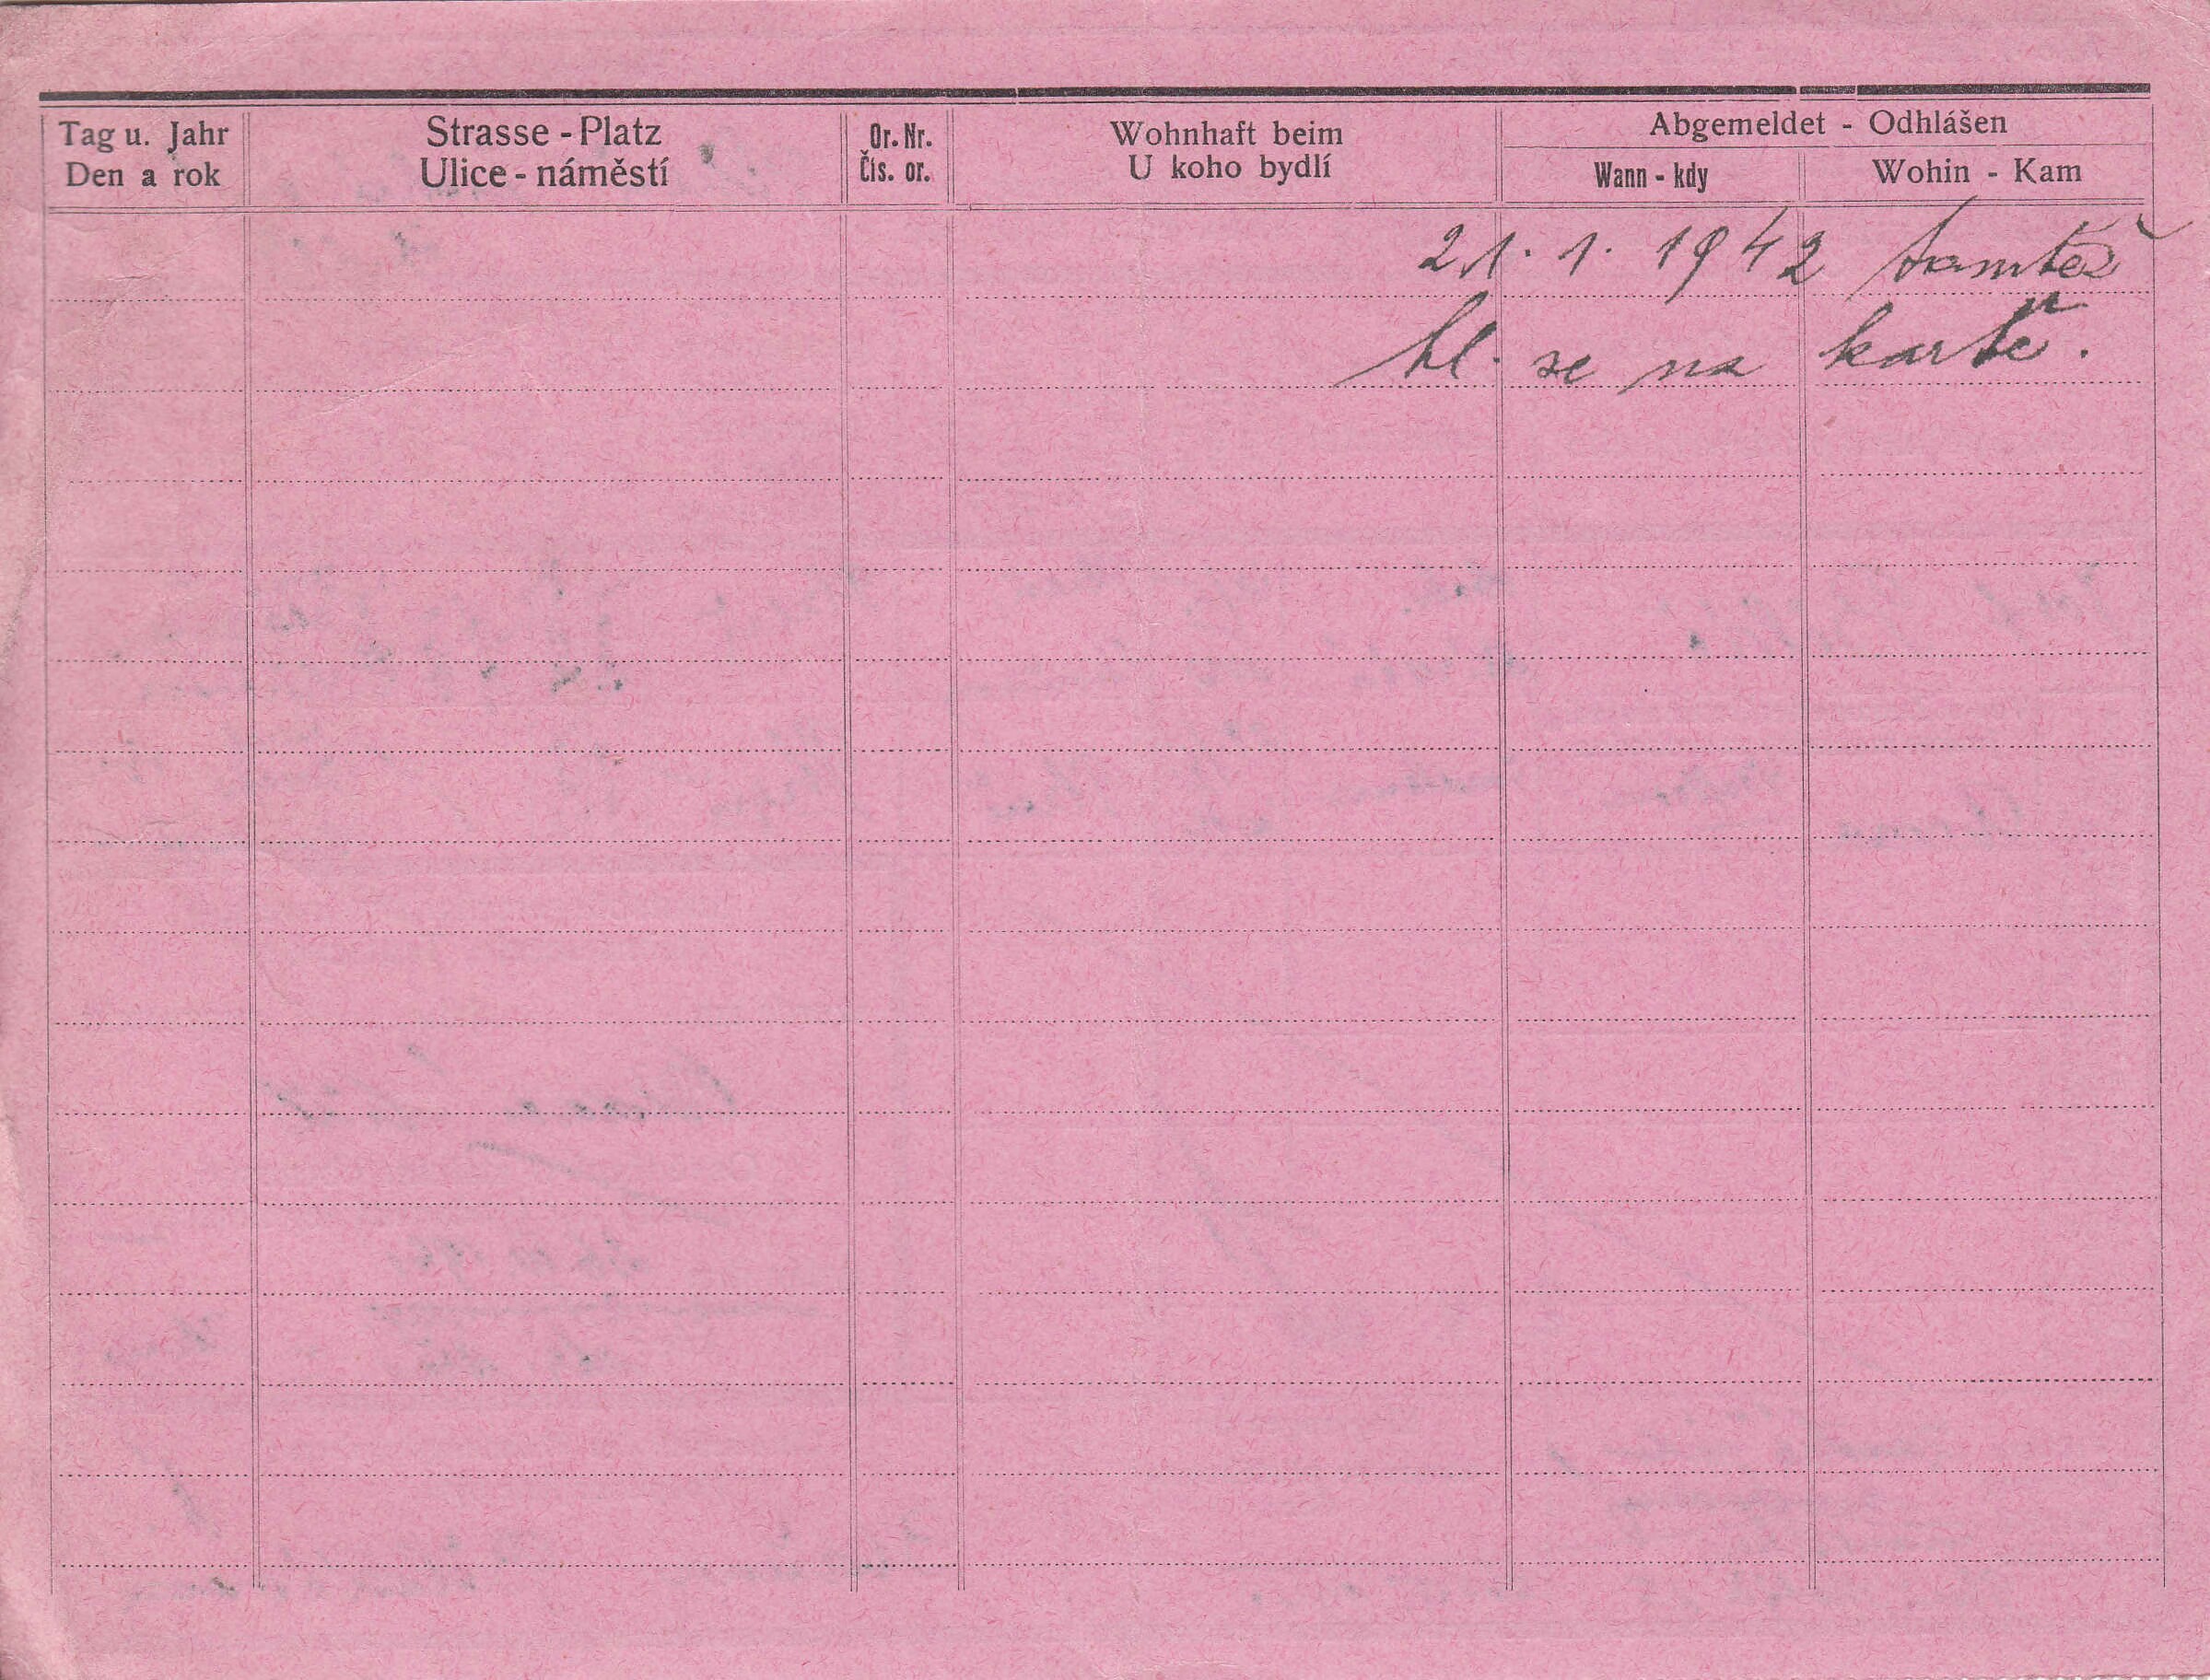 Tag u. Jahr
Den a rok
Strasse - Platz
Ulice - náměstí
Or. Nr.
Čís. or.
Wohnhaft beim
U koho bydlí
Abgemeldet - Odhlášen
Wann - kdy
Wohin - Kam
21. 1. 1942 tamtéž
hl. se na kartě.